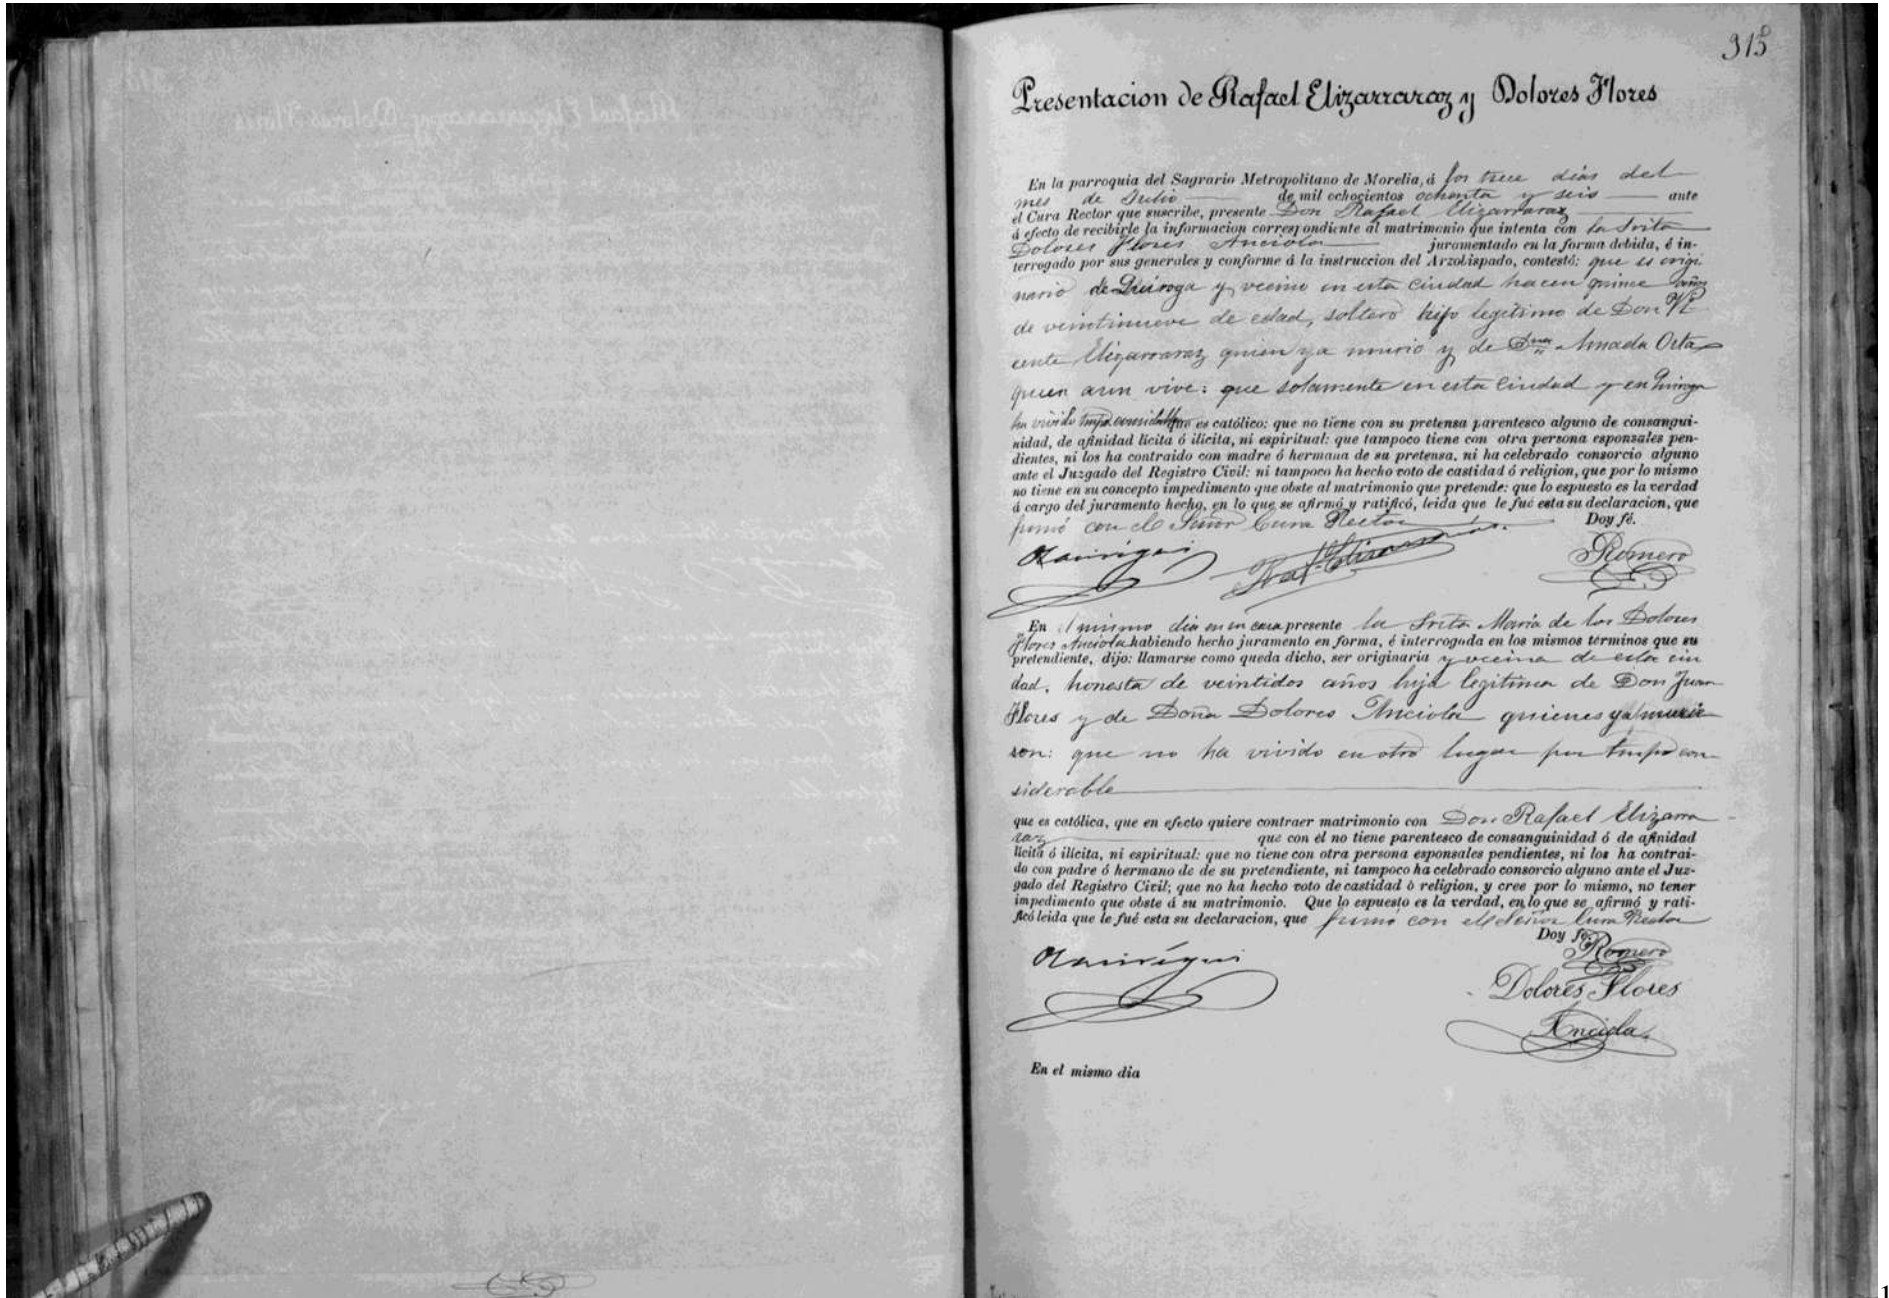 315
Presentacion de Rafael Elizarraraz y Dolores Flores
En la parroquia del Sagrario Metropolitano de Morelia, á los trece dias del
mes de Julio de mil ochocientos ochenta y seis ante
el Cura Rector que suscribe, presente Don Rafael Elizarraraz
á efecto de recibirle la informacion correspondiente al matrimonio que intenta con la Srita
Dolores Flores Anciola juramentado en la forma debida, é in-
terrogado por sus generales y conforme á la instruccion del Arzobispado, contestó: que es origi
nario de Quiroga y vecino en esta ciudad hacen quince años
de veintinueve de edad, soltero hijo legitimo de Don Vi
cente Elizarraraz quien ya murió y de Amada Orta
quien aun vive: que solamente en esta Ciudad y en Quiroga
ha vivido tmpo. que es católico: que no tiene con su pretensa parentesco alguno de consangui-
nidad, de afinidad lícita ó ilícita, ni espiritual: que tampoco tiene con otra persona esponsales pen-
dientes, ni los ha contraido con madre ó hermana de su pretensa, ni ha celebrado consorcio alguno
ante el Juzgado del Registro Civil: ni tampoco ha hecho voto de castidad ó religion, que por lo mismo
no tiene en su concepto impedimento que obste al matrimonio que pretende: que lo espuesto es la verdad
á cargo del juramento hecho, en lo que se afirmó y ratificó, leida que le fué esta su declaracion, que
firmó con el Señor Cura Rector Doy fé.
Raf. Elizarraraz Romero
En el mismo dia en su casa presente la Srita Maria de los Dolores
Flores Anciola habiendo hecho juramento en forma, é interrogada en los mismos términos que su
pretendiente, dijo: llamarse como queda dicho, ser originaria y vecina de esta ciu
dad, honesta de veintidos años hija legitima de Don Juan
Flores y de Doña Dolores Anciola quienes ya murie
ron: que no ha vivido en otro lugar por tmpo con
siderable
que es católica, que en efecto quiere contraer matrimonio con Don Rafael Elizarra
raz que con él no tiene parentesco de consanguinidad ó de afinidad
lícita ó ilícita, ni espiritual: que no tiene con otra persona esponsales pendientes, ni los ha contrai-
do con padre ó hermano de de su pretendiente, ni tampoco ha celebrado consorcio alguno ante el Juz-
gado del Registro Civil; que no ha hecho voto de castidad ó religion, y cree por lo mismo, no tener
impedimento que obste á su matrimonio. Que lo espuesto es la verdad, en lo que se afirmó y rati-
ficó leida que le fué esta su declaracion, que firmó con el Señor Cura Rector
Doy fé.
Romero
Dolores Flores
Anciola.
En el mismo dia
1